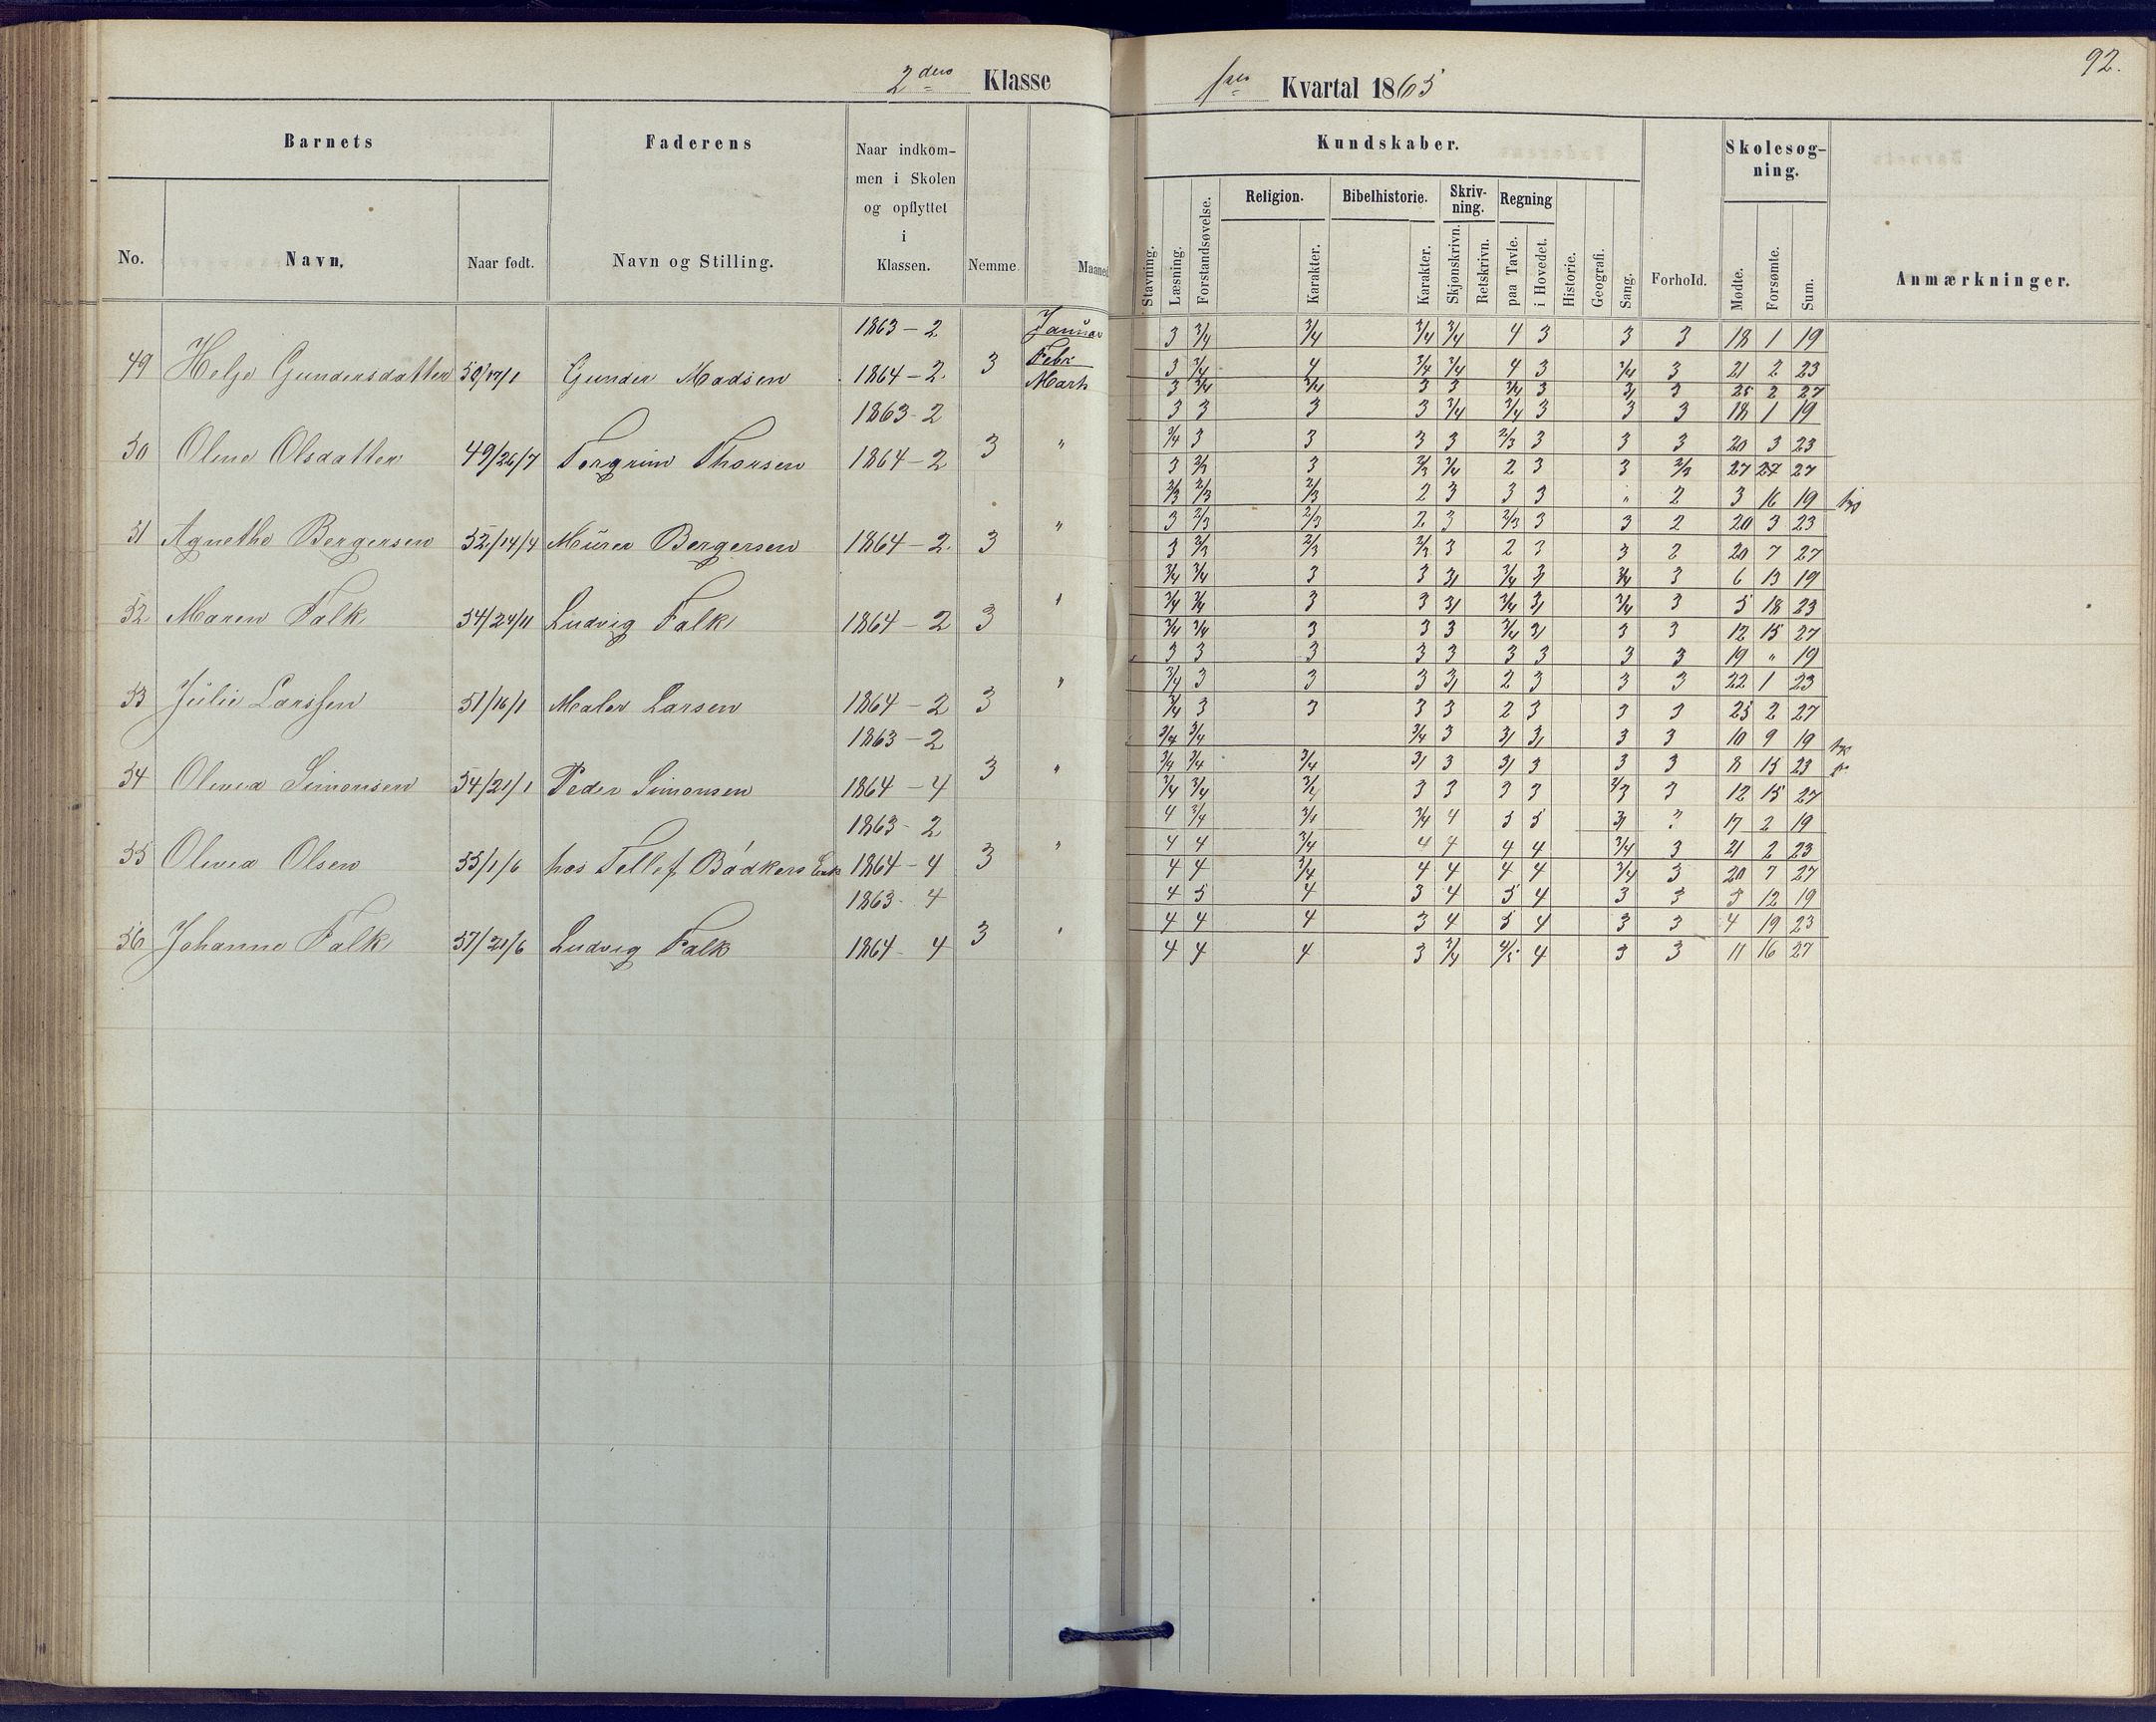 92.
2den Klasse 1ste Kvartal 1865
Barnets Faderens Naar indkom-
men i Skolen
og opflyttet
i
Klassen. Nemme Maaned
No. Navn. Naar født. Navn og Stilling.
Kundskaber. Skolesøg-
ning.
Stavning. Læsning. Forstandsøvelse. Religion. Karakter. Bibelhistorie. Karakter. Skriv-
ning. Skjønskrivn. Retskrivn. Regning paa Tavle. i Hovedet. Historie. Geografi. Sang. Forhold. Mødte. Forsømte. Sum. Anmærkninger.
1863 - 2 Januar 3 3/4 3/4 3/4 3/4 4 3 3 3 18 1 19
49 Helje Gundersdatter 50/17/1 Gunder Madsen 1864 - 2. 3 Febr 3 3/4 4 3/4 3/4 4 3 3/4 3 21 2 23
Marts 3 3/4 3/4 3 3 3/4 3 3 3 25 2 27
1863 - 2 3 3 3 3 3/4 3/4 3 3 3 18 1 19
50 Oline Olsdatter 49/26/7 Torgrim Thorsen 1864 - 2 3 " 3/4 3 3 3 3 2/3 3 3 3 20 3 23
3 2/3 3 2/3 3/4 2 3 3 2/3 27 27
2/3 2/3 2/3 2 3 3 3 " 2 3 16 19
51 Agnethe Bergersen 52/14/4 Murer Bergersen 1864 - 2. 3 " 3 2/3 2/3 2 3 2/3 3 3 2 20 3 23
3 2/3 2/3 2/3 3 2 3 3 2 20 7 27
3/4 3/4 3 3 3 3/4 3 3/4 3 6 13 19
52 Maren Falk 54/24/11 Ludvig Falk 1864 - 2 3 " 3/4 3/4 3 3 3 3/4 3 3/4 3 5 18 23
3/4 3/4 3 3 3 3/4 3 3 3 12 15 27
3 3 3 3 3 3 3 3 3 19 " 19
53 Julie Larssen 51/16/1 Maler Larsen 1864 - 2 3 " 3/4 3 3 3 3 2 3 3 3 22 1 23
3/4 3 3 3 3 2 3 3 3 25 2 27
1863 - 2 3/4 3/4 3/4 3 3 3 3 3 10 9 19
54 Olevia Simonsen 54/21/1 Peder Simonsen 1864 - 4 3 " 3/4 3/4 3/4 3 3 3 3 3 3 8 15 23
3/4 3/4 3/4 3 3 3 3 2/3 3 12 15 27
1863 - 2 4 3/4 3/4 3/4 4 5 5 3 17 2 19
55 Olevia Olsen 55/1/6 hos Tellef Bødkers Enke 1864 - 4 3 " 4 4 3/4 4 4 4 4 3/4 3 21 2 23
4 4 3/4 4 4 4 4 3/4 3 20 7 27
1863 - 4 4 5 4 3 4 5 4 3 3 12 19
56 Johanne Falk 57/21/6 Ludvig Falk 1864 - 4 3 " 4 4 4 3 4 5 4 3 3 4 19 23
4 4 4 3 3/4 4/5 4 3 3 11 16 27